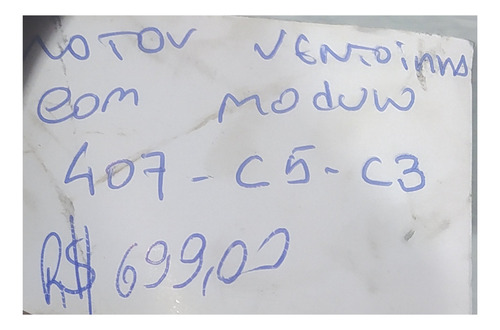 MOTOV VENTOINHA
COM MODULO
407-C5-C3
R$ 699,00